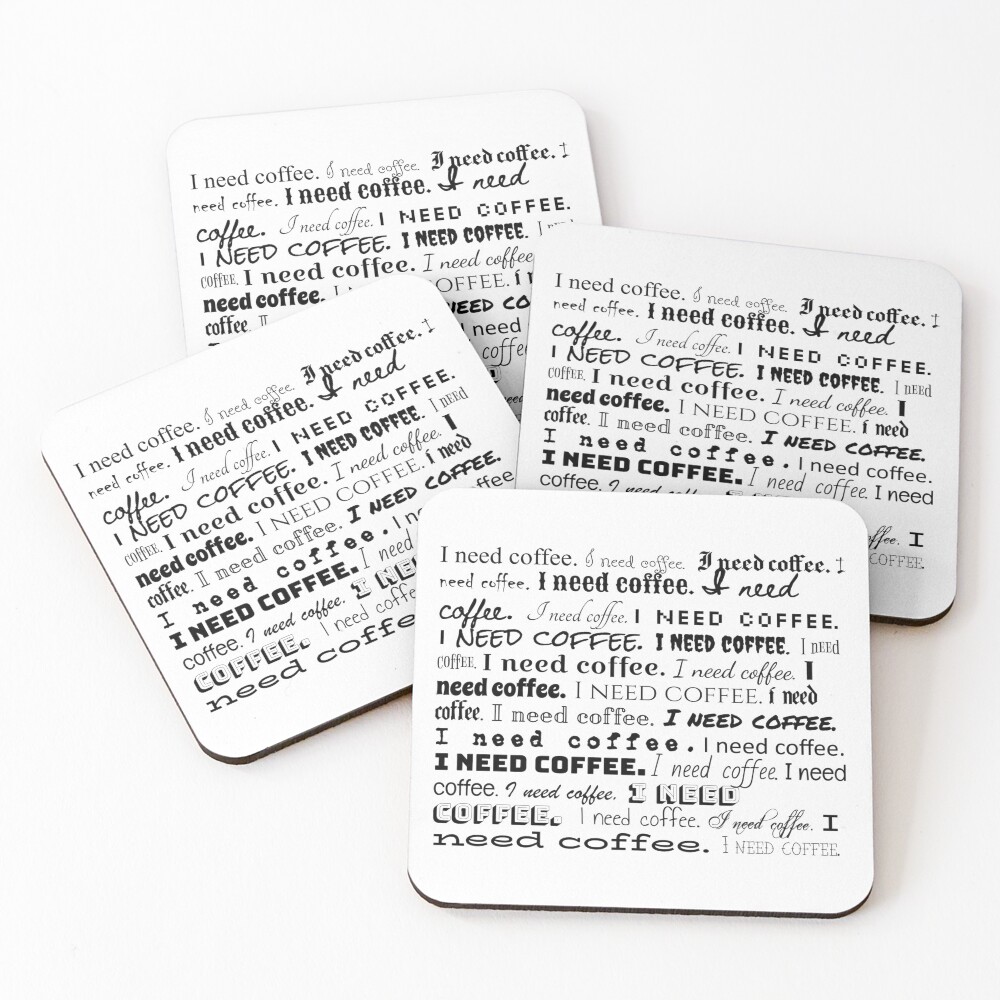 I need coffee. I need coffee. I need coffee. I
need coffee. I need coffee. I need
coffee. I need coffee. I NEED COFFEE.
I NEED COFFEE. I NEED COFFEE. I need
coffee. I need coffee. I need coffee
need coffee. OFFEE.
coffee. I NEED CO
need
coffee
I need coffee. I need coffee. I need coffee. I
need coffee. I need coffee. I need
coffee. I need coffee. I NEED COFFEE.
I NEED COFFEE. I NEED COFFEE. I need
coffee. I need coffee. I need coffee. I
need coffee. I NEED COFFEE. i need
coffee. I need coffee. I NEED COFFEE.
I need coffee. I need coffee.
I NEED COFFEE. I need coffee. I need
coffee. I need
coffee. I
COFFEE.
I need coffee. I need coffee. I need coffee. I
need coffee. I need coffee. I need
coffee. I need coffee. I NEED COFFEE.
I NEED COFFEE. I NEED COFFEE. I need
coffee. I need coffee. I need coffee. I
need coffee. I NEED COFFEE. i need
coffee. I need coffee. I NEED COFFEE.
I need coffee. I need coffee
I NEED COFFEE. I need
coffee. I need coffee. I NE
COFFEE. I need coffe
need coffe
I need coffee. I need coffee. I need coffee. I
need coffee. I need coffee. I need
coffee. I need coffee. I NEED COFFEE.
I NEED COFFEE. I NEED COFFEE. I need
coffee. I need coffee. I need coffee. I
need coffee. I NEED COFFEE. i need
coffee. I need coffee. I NEED COFFEE.
I need coffee. I need coffee.
I NEED COFFEE. I need coffee. I need
coffee. I need coffee. I NEED
COFFEE. I need coffee. I need coffee. I
need coffee. I NEED COFFEE.